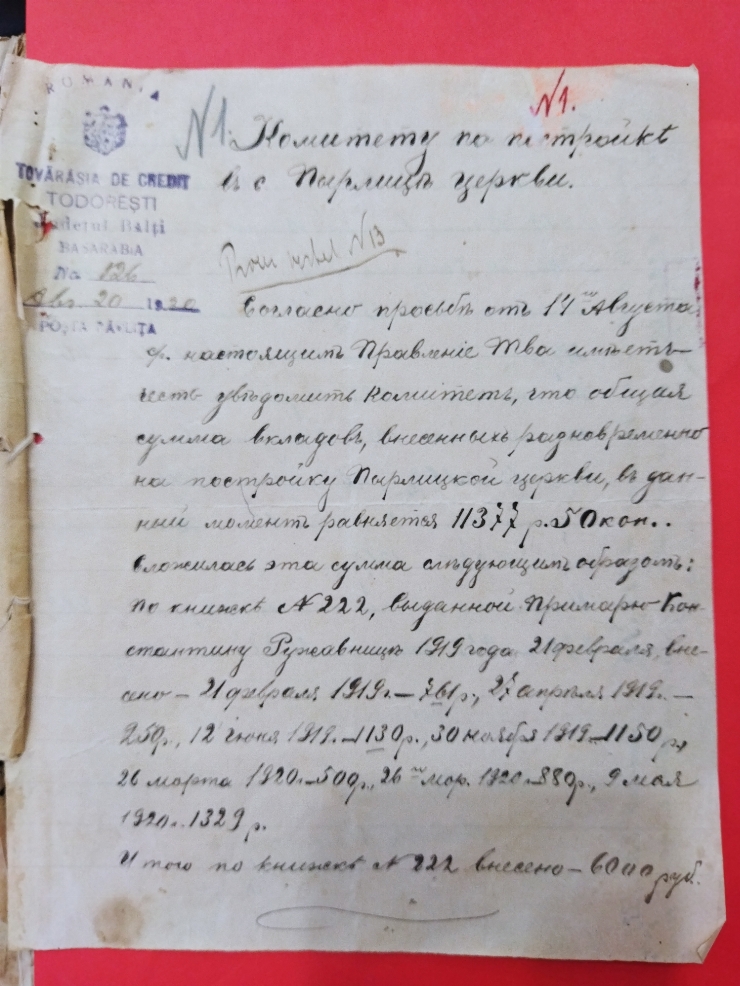 ROMANIA
TOVĂRĂSIA DE CREDIT
TODOREŞTI
Judeţul Bălţi
BASARABIA
No 126
Авг. 20 1920
POŞTA PÂRLIŢA
N1.
N1.
Комитету по постройкѣ
въ с. Пырлицѣ церкви.
N 13
Согласно просьбѣ отъ 17 Августа
с/г. настоящимъ Правленіе Т-ва имѣетъ
честь увѣдомить Комитетъ, что общая
сумма вкладовъ, внесенныхъ разновременно
на постройку Пырлицкой церкви, въ дан-
ный моментъ равняется 11377 р. 50 коп..
Сложилась эта сумма слѣдующимъ образомъ:
По книжкѣ N 222, выданной Примарю Кон-
стантину Ружавницѣ 1919 года 21 февраля, вне-
сено – 21 февраля 1919 г. – 761 р., 27 апрѣля 1919 г. –
250 р., 12 іюня 1919 г. – 1130 р., 30 ноября 1919 – 1150 р.,
26 марта 1920 г. – 500 р., 26 мар. 1920 – 880 р., 9 мая
1920 г. 1329 р.
Итого по книжкѣ N 222 внесено – 6000 руб.